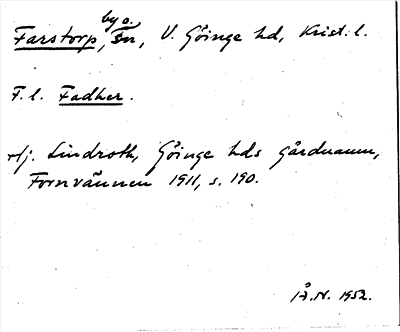 Farstorp, by o. sn, V. Göinge hd, Krist. l.
F. l. Fadher.
Jfr. Lindroth, Göinge hds gårdnamn,
Fornvännen 1911, s. 190.
Å.N. 1952.